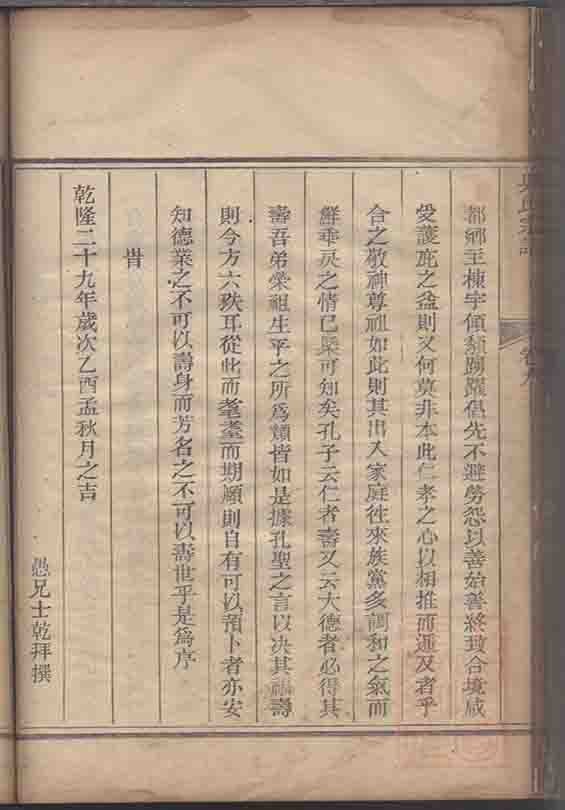 卷九
都鄉主棟宇傾頽踴躍倡先不避勞怨以善始善終致合境咸
受護庇之益則又何莫非本此仁孝之心以相推而遞及者乎
合之敬神尊祖如此則其出入家庭往來族黨多調和之氣而
鮮乖戾之情已槩可知矣孔子云仁者壽又云大德者必得其
壽吾弟榮祖生平之所爲類皆如是據孔聖之言以决其福壽
則今方六秩耳從此而耄耋而期頤則自有可以預卜者亦安
知德業之不可以壽身而芳名之不可以壽世乎是爲序
旹
乾隆二十九年歲次乙酉孟秋月之吉
愚兄士乾拜撰